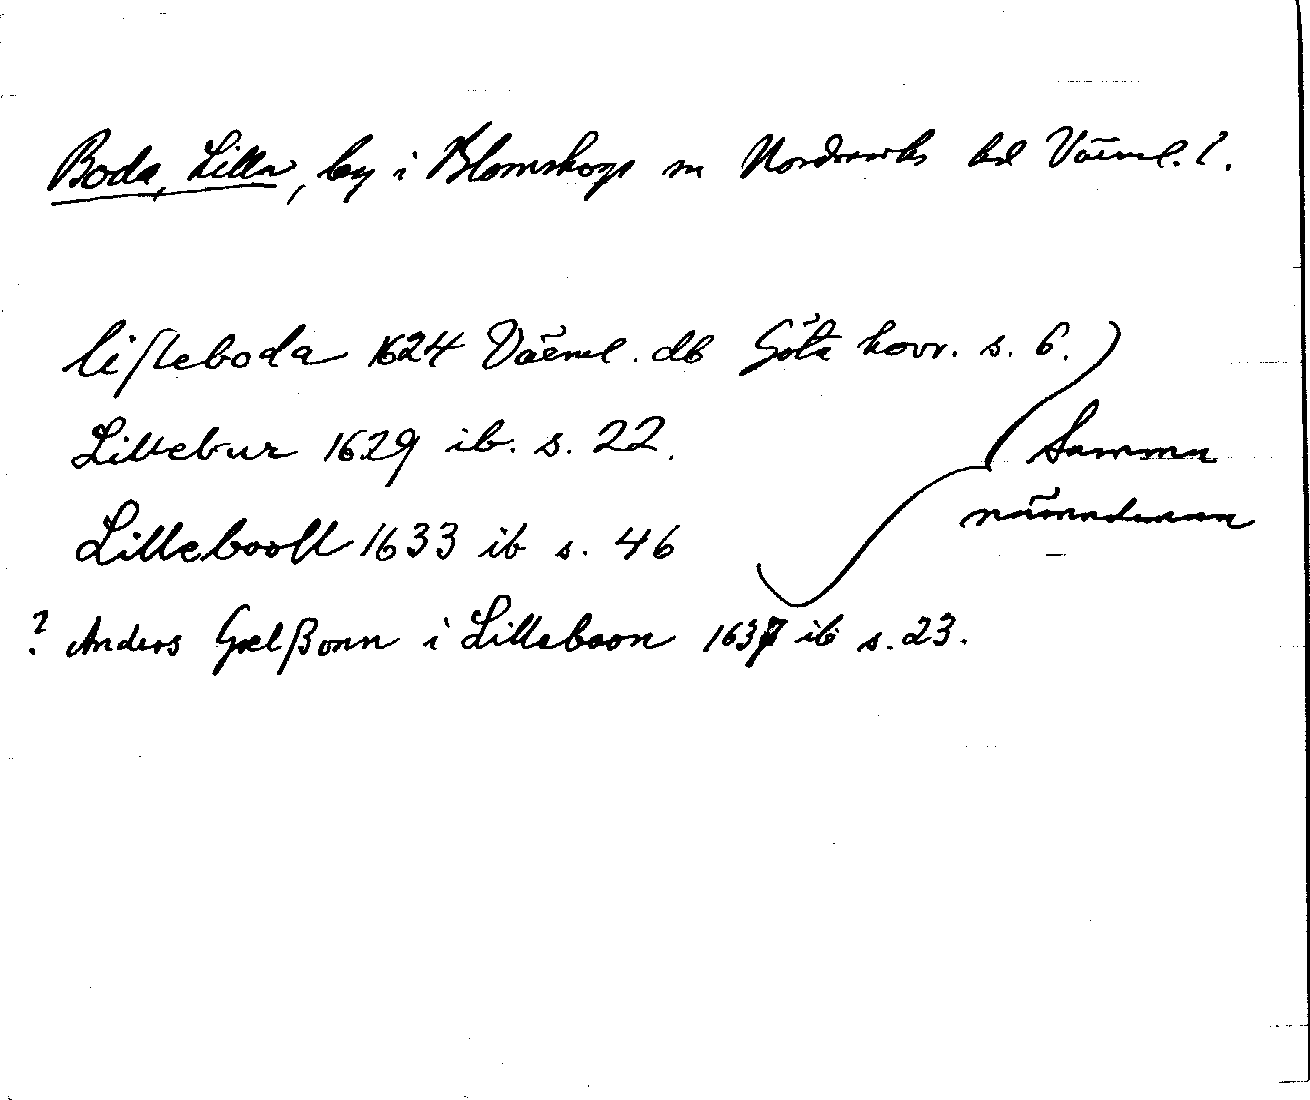 Boda, Lilla, by i Blomskogs sn Nordmarks hd Värml. l.
lisleboda 1624 Värml. db Göta hovr. s. 6.
Littebur 1629 ib. s. 22.
Samma
Lillebooll 1633 ib s. 46
nämndeman
? Anders Gælßonn i Lilleboon 1637 ib s. 23.